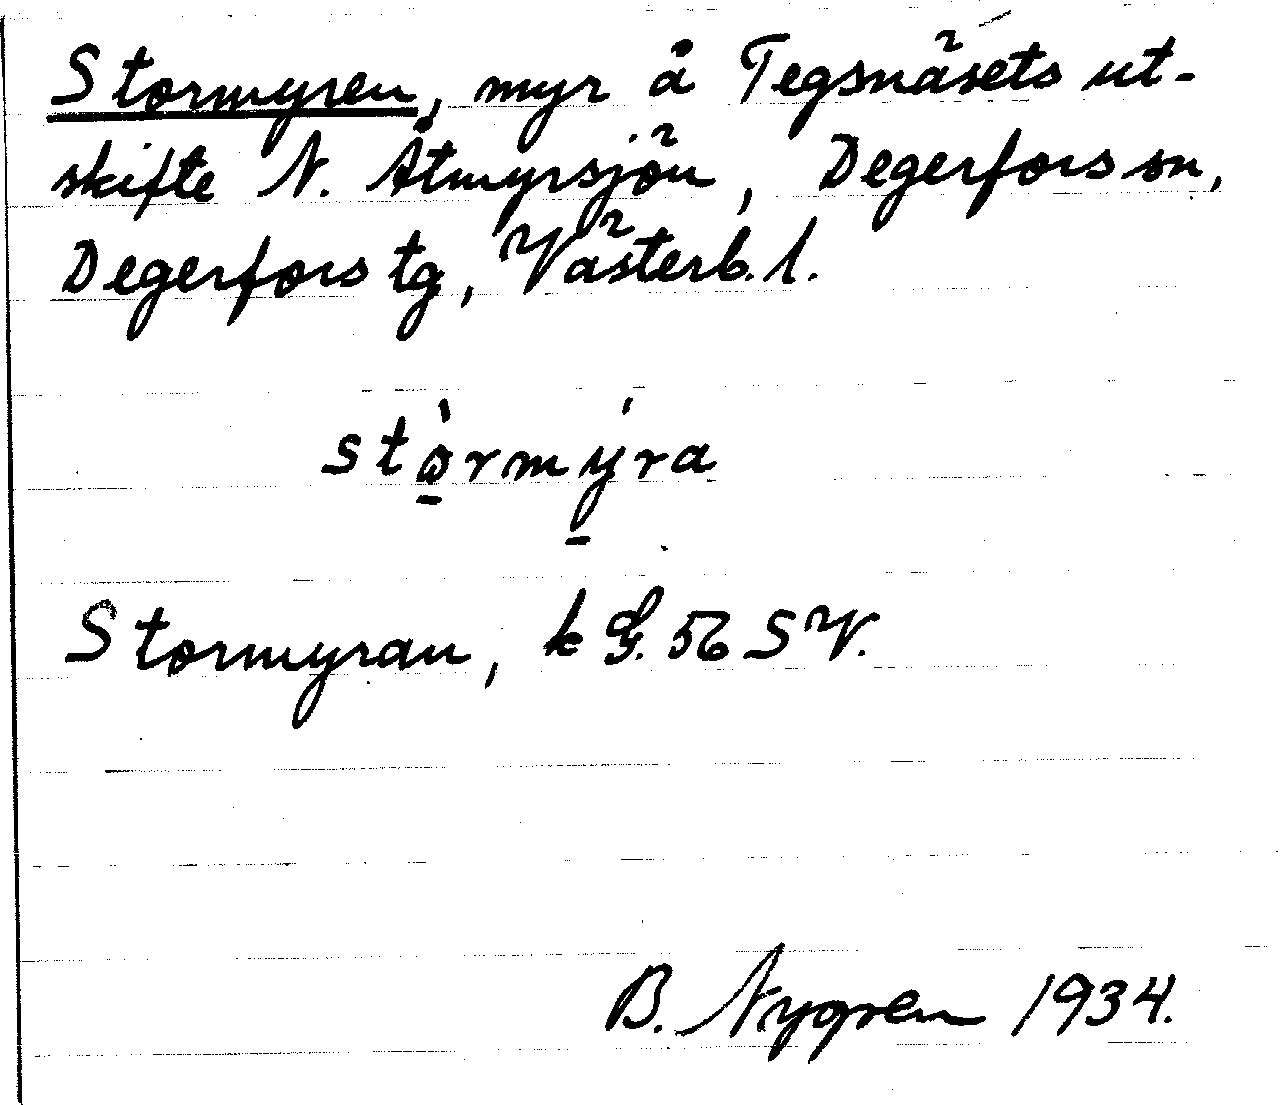 Stormyren, myr å Tegsnäsets ut-
skifte N. Åtmyrsjön, Degerfors sn,
Degerfors tg, Västerb. l.
stò̱rmý̱ra
Stormyran, k G. 56 SV.
B. Nygren 1934.